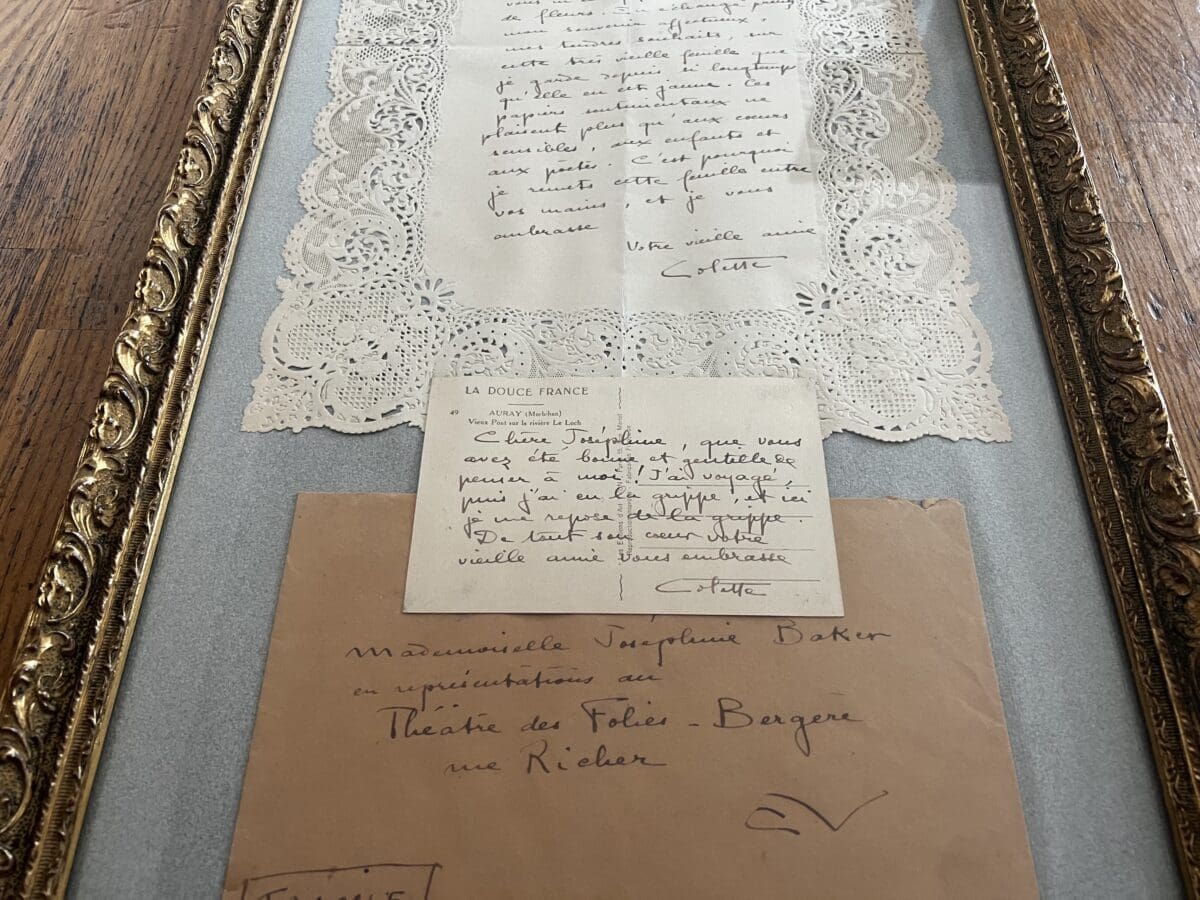 de fleurs. échange
mon souvenir affectueux,
mes tendres souhaits, sur
cette très vieille feuille que
je garde depuis si longtemps
qu'elle en est jaune. Les
papiers sentimentaux ne
plaisent plus qu'aux cœurs
sensibles, aux enfants et
aux poètes. C'est pourquoi
je remets cette feuille entre
vos mains, et je vous
embrasse
Votre vieille amie
Colette
LA DOUCE FRANCE
49 AURAY (Morbihan)
Vieux Pont sur la rivière Le Loch
Chère Joséphine, que vous
avez été bonne et gentille de
penser à moi! J'ai voyagé,
puis j'ai eu la grippe, et ici
je me repose de la grippe.
De tout son cœur votre
vieille amie vous embrasse
Colette
Mademoiselle Joséphine Baker
en représentations au
Théâtre des Folies-Bergère
rue Richer